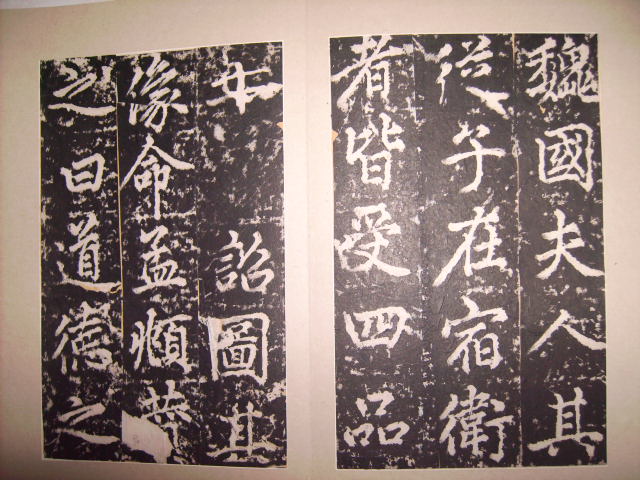 魏國夫人其
從子在宿衛
者皆受四品
詔圖其
像命孟頫
之曰道德之